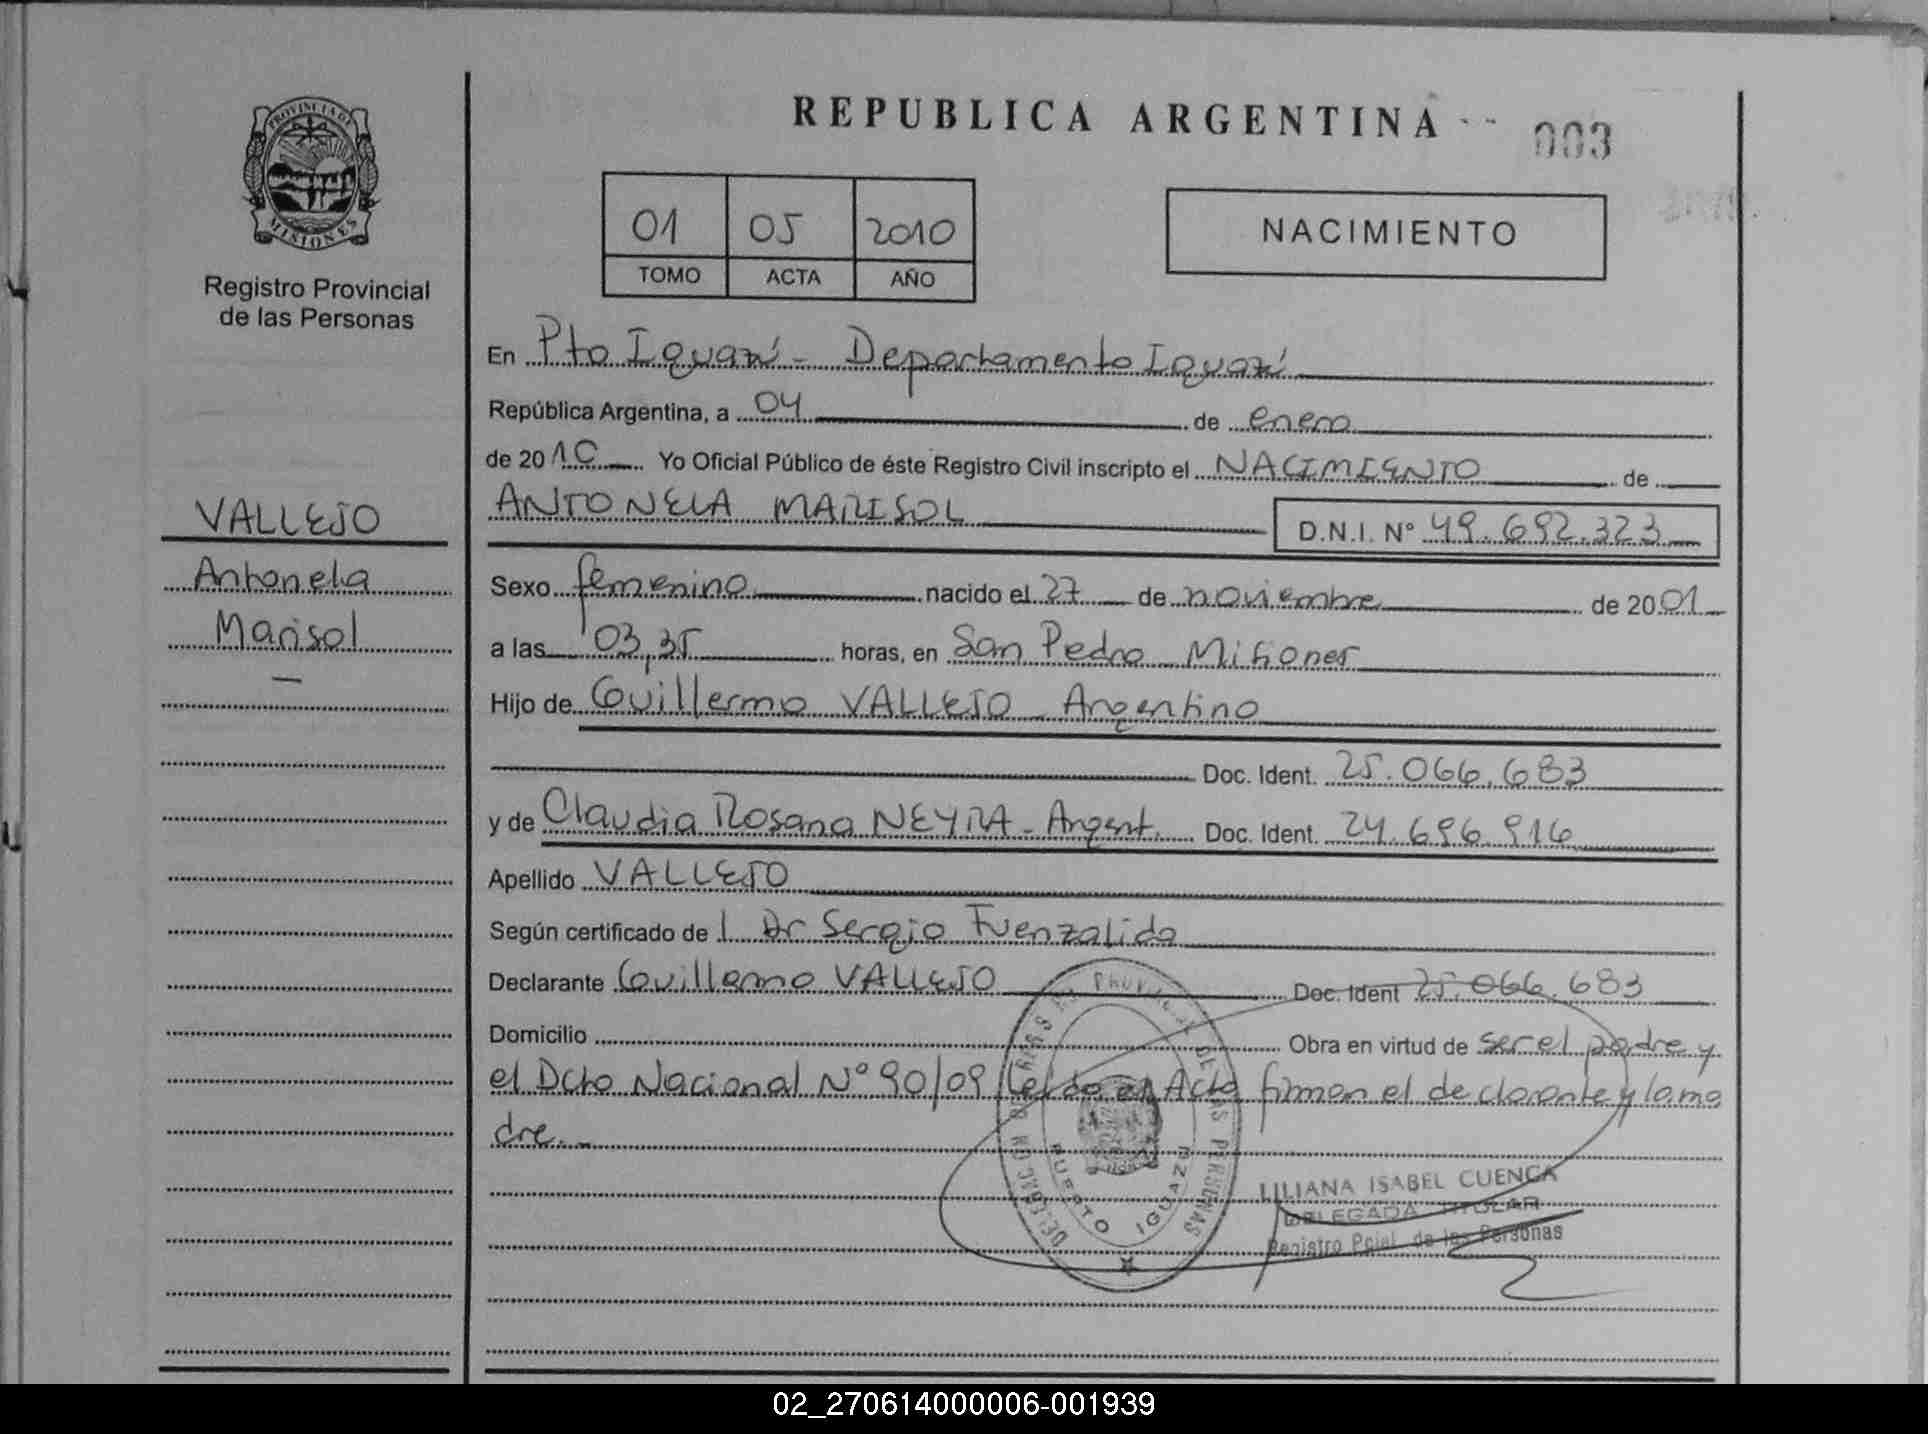 PROVINCIA DE
MISIONES
Registro Provincial
de las Personas
VALLEJO
Antonela
Marisol
REPUBLICA ARGENTINA
003
01 05 2010
TOMO ACTA AÑO
NACIMIENTO
En Pto Iguazú - Departamento Iguazú
República Argentina, a 04 de enero
de 2010 Yo Oficial Público de éste Registro Civil inscripto el NACIMIENTO de
ANTONELA MARISOL D.N.I. N° 49.692.323
Sexo femenino nacido el 27 de noviembre de 2001
a las 03,35 horas, en San Pedro Misiones
Hijo de Guillermo VALLEJO - Argentino
Doc. Ident. 25.066.683
y de Claudia Rosana NEYRA - Argent. Doc. Ident. 24.696.916
Apellido VALLEJO
Según certificado de l Dr Sergio Fuenzalida
Declarante Guillermo VALLEJO Doc. Ident 25.066.683
Domicilio Obra en virtud de ser el padre y
el Dcto Nacional N° 90/09 Leída el Acta firman el declarante y la ma
dre.-
PUERTO IGUAZU
LILIANA ISABEL CUENCA
DELEGADA TITULAR
Registro Pcial. de las Personas
02_270614000006-001939